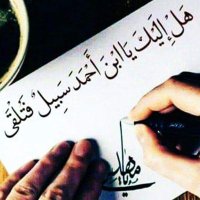 هَلْ إِلَيْكَ يَا ابْنَ أَحْمَدَ سَبِيلٌ فَتُلْقَىٰ